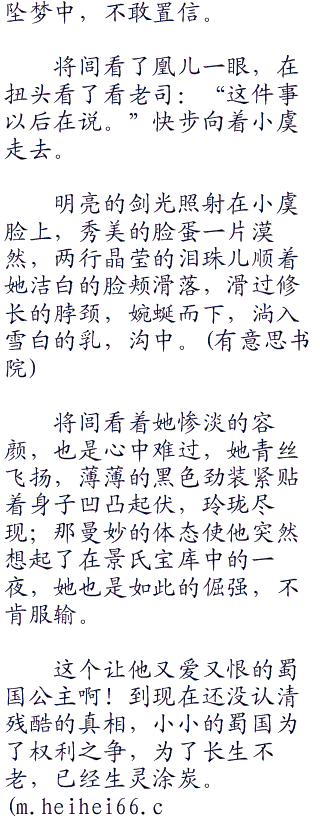 坠梦中，不敢置信。
将闾看了凰儿一眼，在
扭头看了看老司：“这件事
以后在说。”快步向着小虞
走去。
明亮的剑光照射在小虞
脸上，秀美的脸蛋一片漠
然，两行晶莹的泪珠儿顺着
她洁白的脸颊滑落，滑过修
长的脖颈，婉蜒而下，淌入
雪白的乳，沟中。(有意思书
院)
将闾看着她惨淡的容
颜，也是心中难过，她青丝
飞扬，薄薄的黑色劲装紧贴
着身子凹凸起伏，玲珑尽
现；那曼妙的体态使他突然
想起了在景氏宝库中的一
夜，她也是如此的倔强，不
肯服输。
这个让他又爱又恨的蜀
国公主啊！到现在还没认清
残酷的真相，小小的蜀国为
了权利之争，为了长生不
老，已经生灵涂炭。
(m.heihei66.c